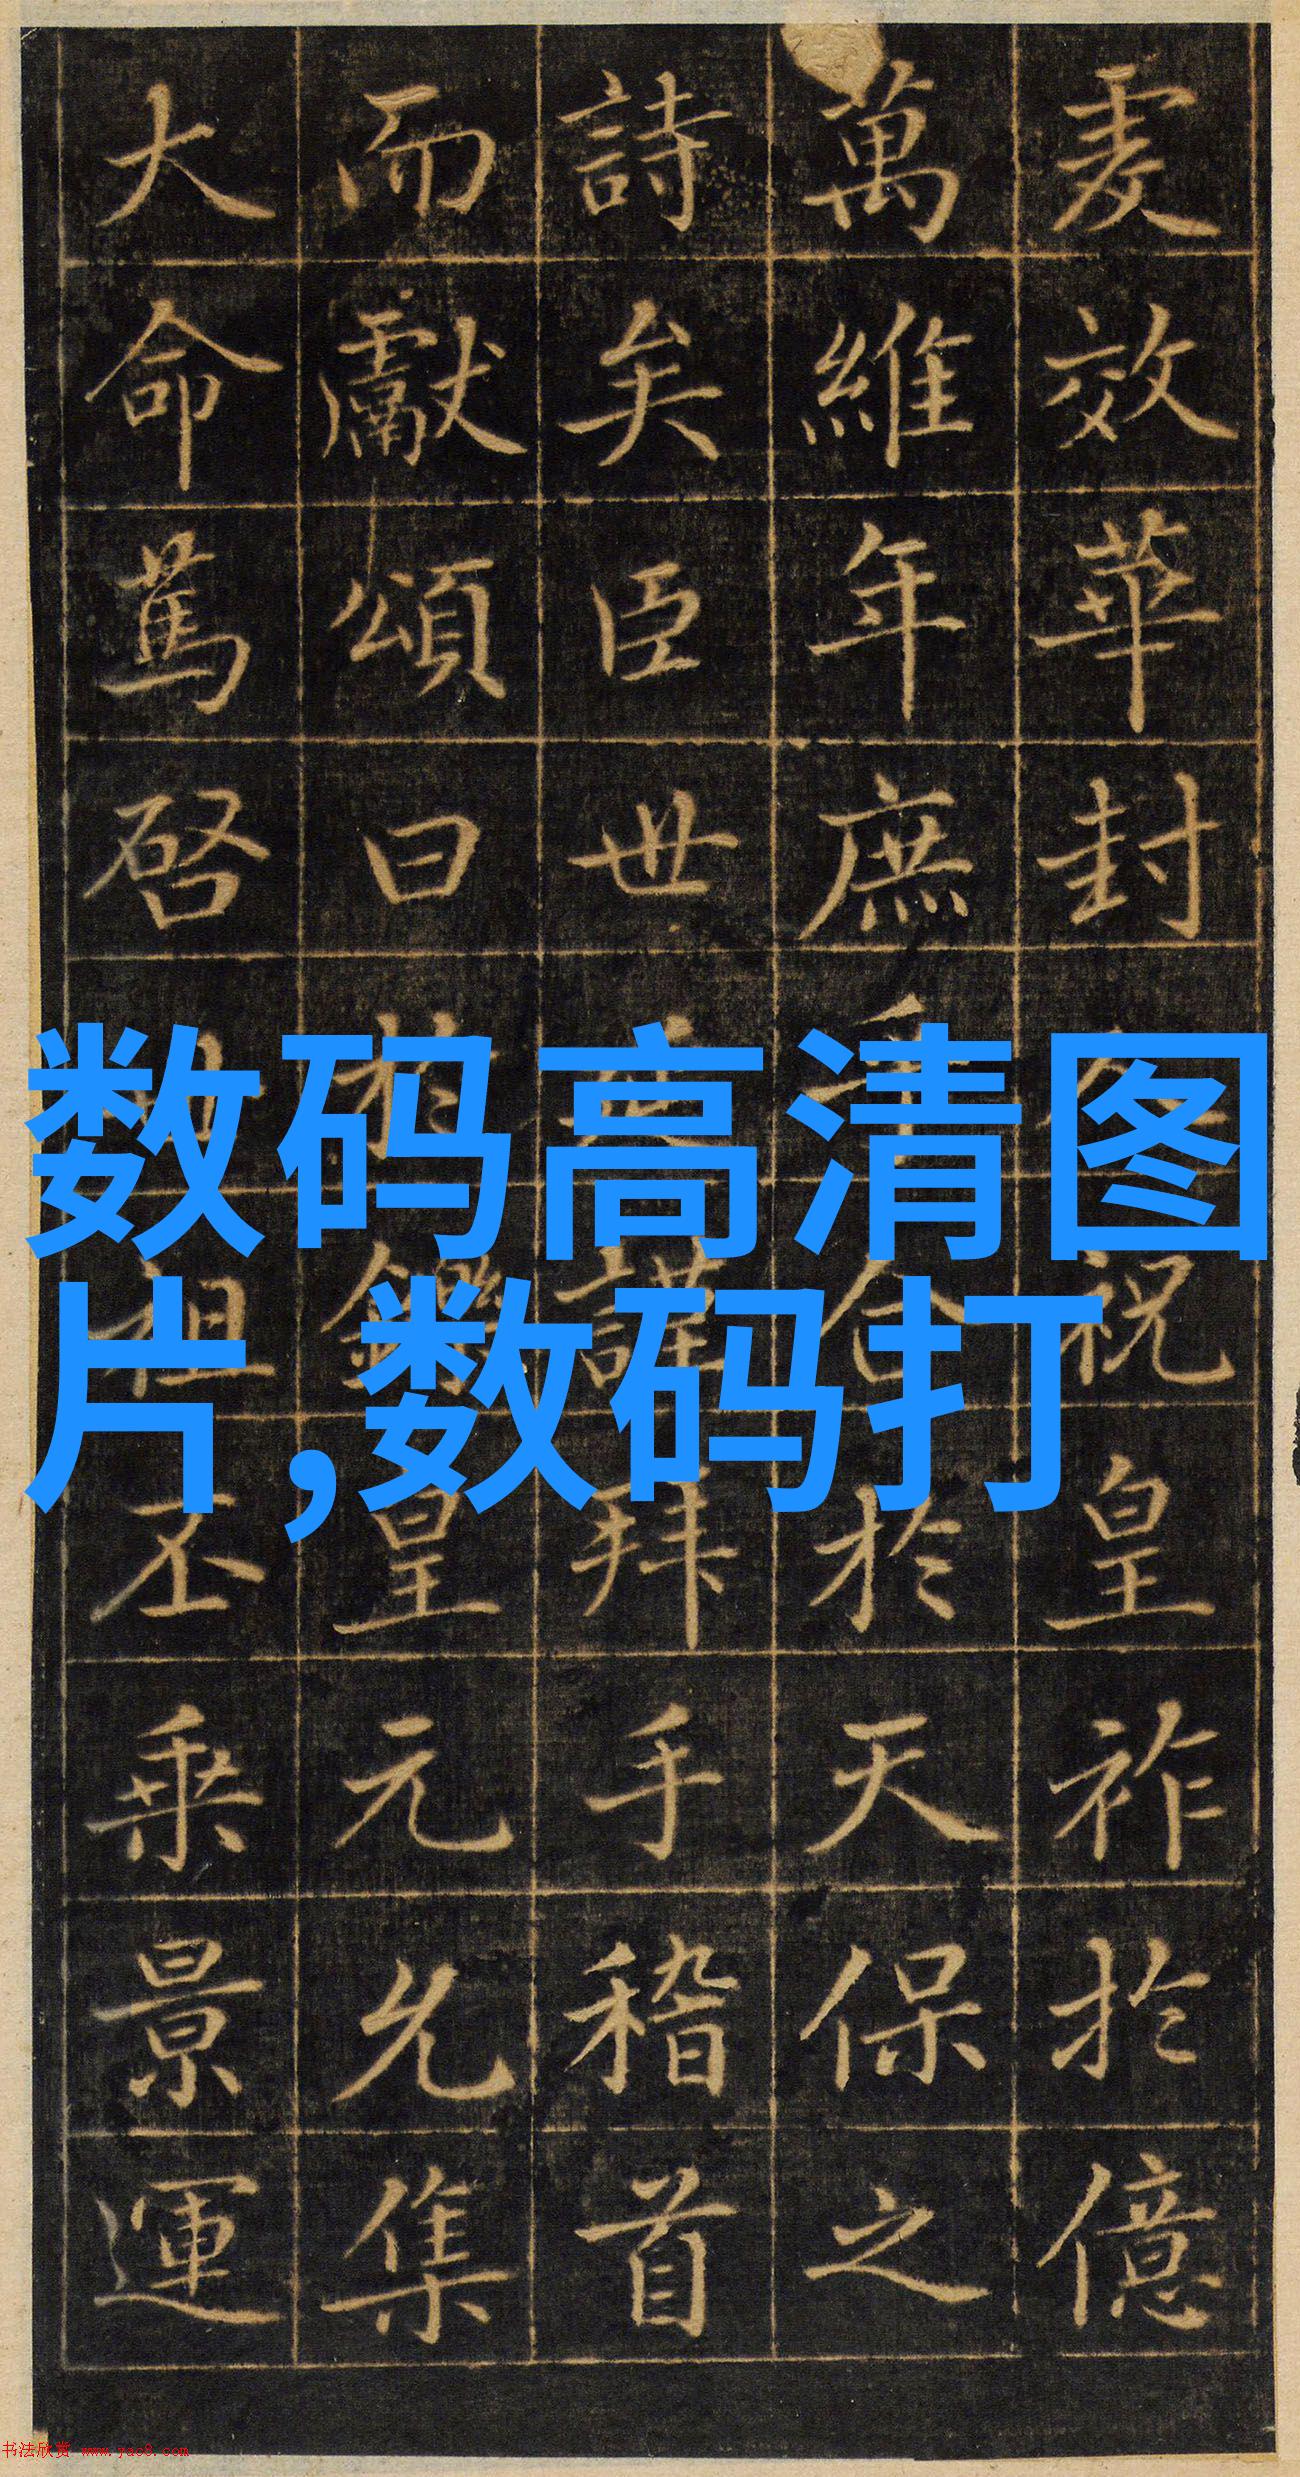 虔效華封祝皇祚於億
萬維年庶乎合於天保之
詩矣臣世謹拜手稽首
而獻頌曰於鑠皇元允集
大命篤啓祖丕乘景運
数码高清图
片,数码打
书法欣赏 www.yac8.com